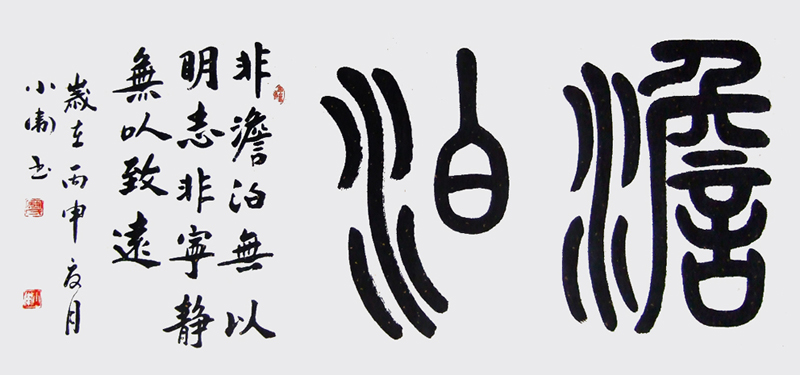 澹泊
非澹泊無以
明志非寧静
無以致遠
歲在丙申夏月
小書